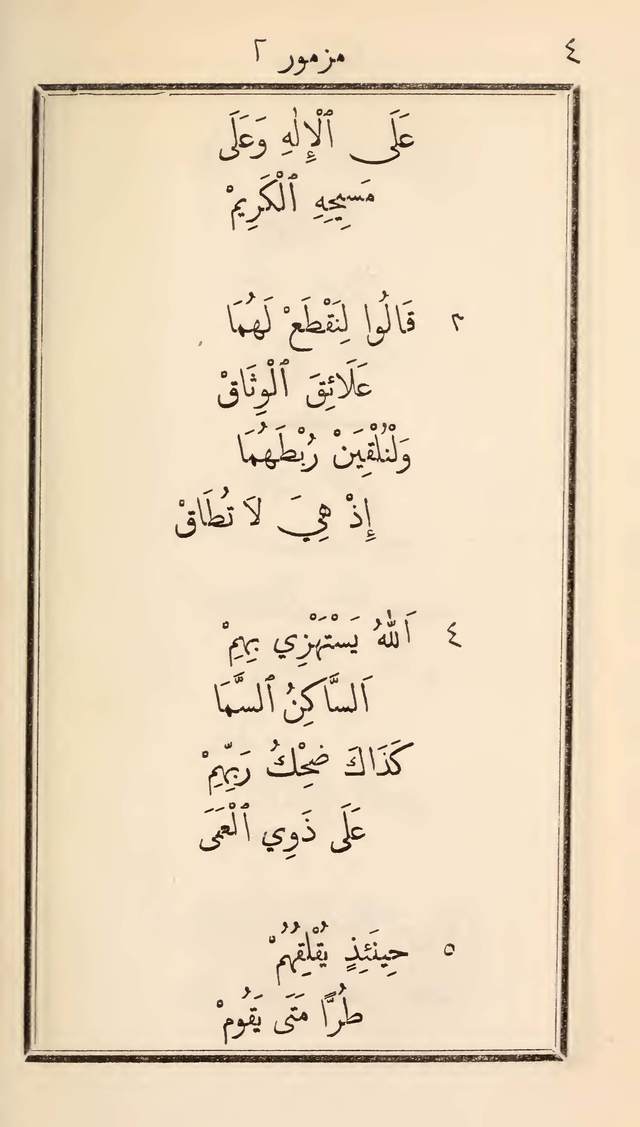 ٤ مزمور ٢
عَلَى ٱلْإِلٰهِ وَعَلَى
مَسِيحِهِ ٱلْكَرِيمْ
٣ قَالُوا لِنَقْطَعْ لَهُمَا
عَلَائِقَ ٱلْوِثَاقْ
وَلْنُلْقِيَنْ رُبْطَهُمَا
إِذْ هِيَ لَا تُطَاقْ
٤ اَللّٰهُ يَسْتَهْزِي بِهِمْ
اَلسَّاكِنُ ٱلسَّمَا
كَذَاكَ ضِحْكُ رَبِّهِمْ
عَلَى ذَوِي ٱلْعَمَى
٥ حِينَئِذٍ يُقْلِقُهُمْ
طُرًّا مَتَى يَقُومْ